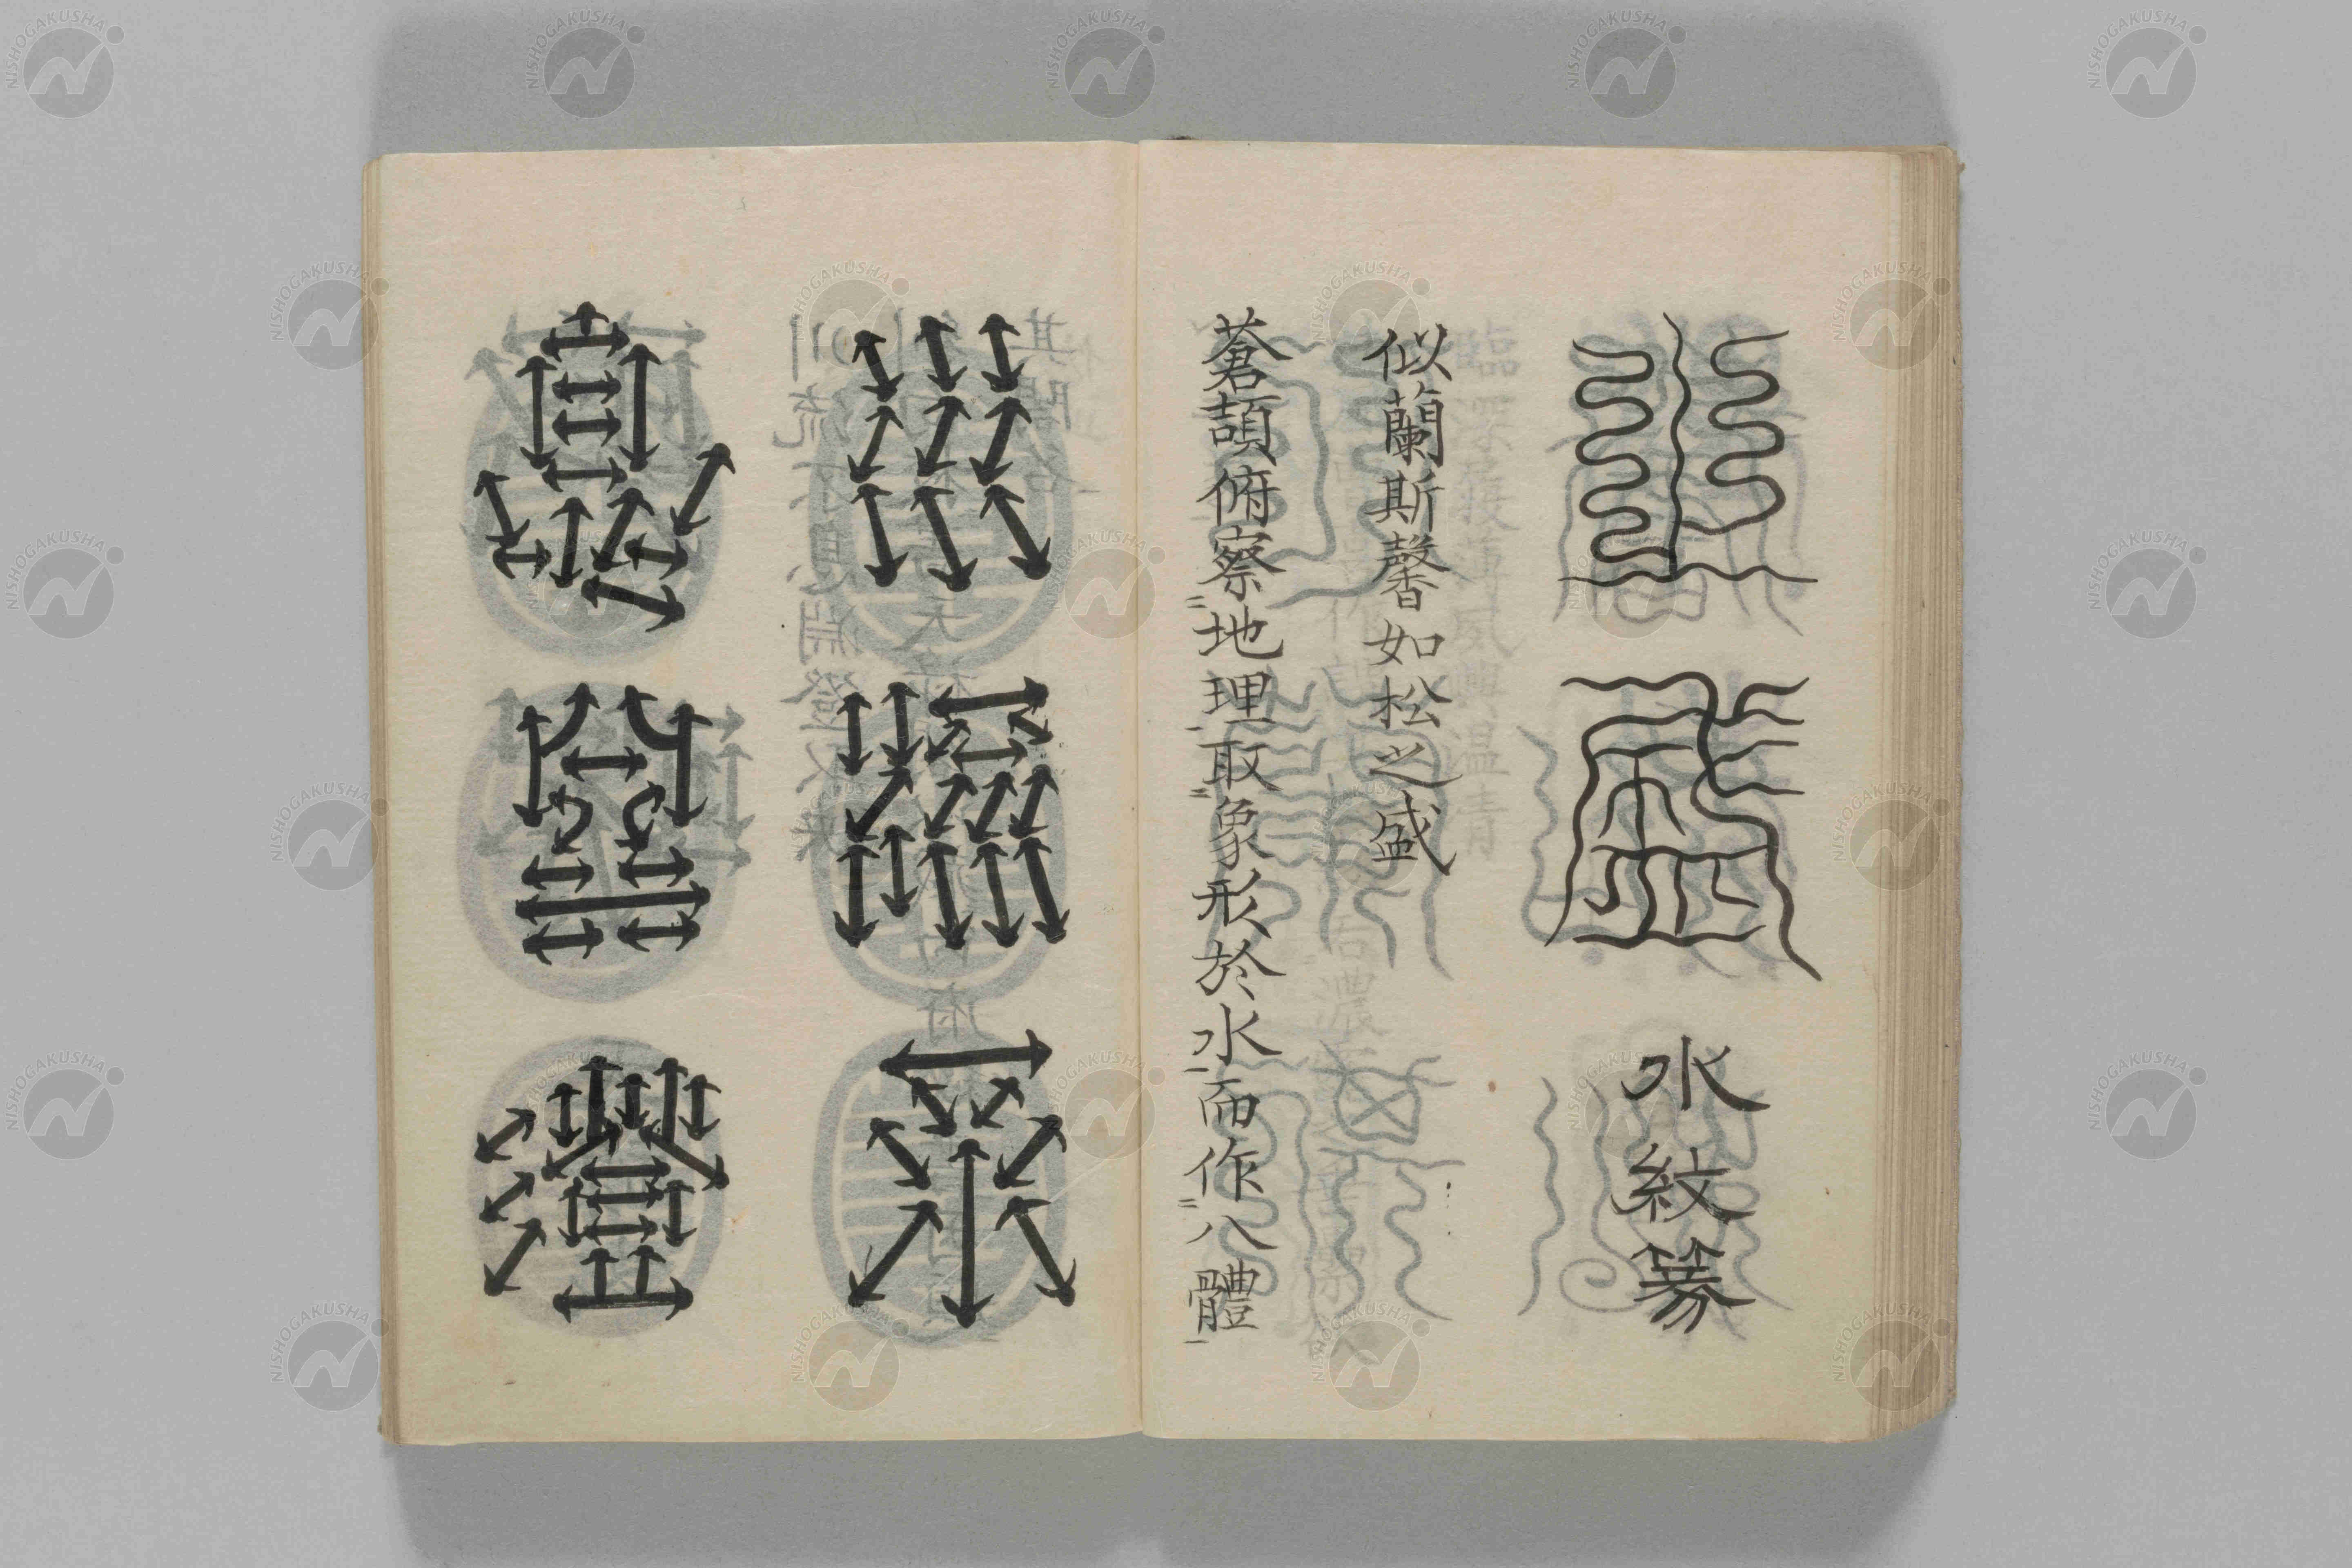 之盛 水紋篆
似蘭斯馨如松之盛
蒼頡俯察地理取象形於水而作八體
川流不
息淵澄
NISHOGAKUSHA